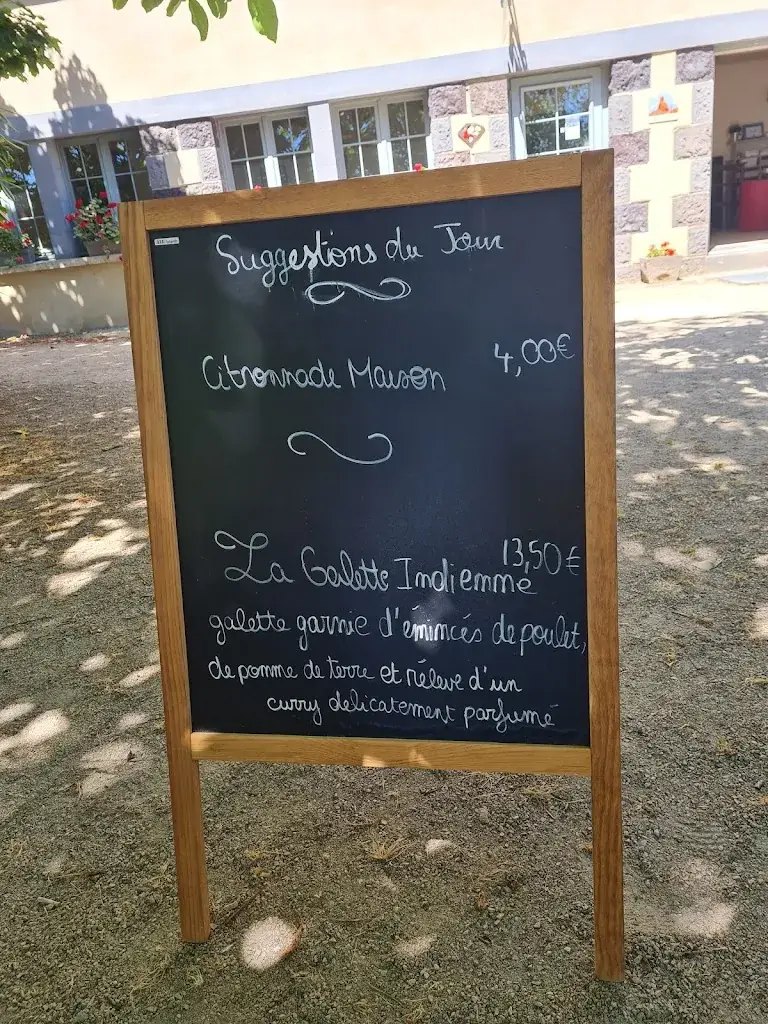 Suggestions du Jour
Citronnade Maison 4,00€
La Galette Indienne 13,50€
galette garnie d'émincés de poulet,
de pomme de terre et rélevé d'un
curry delicatement parfumé